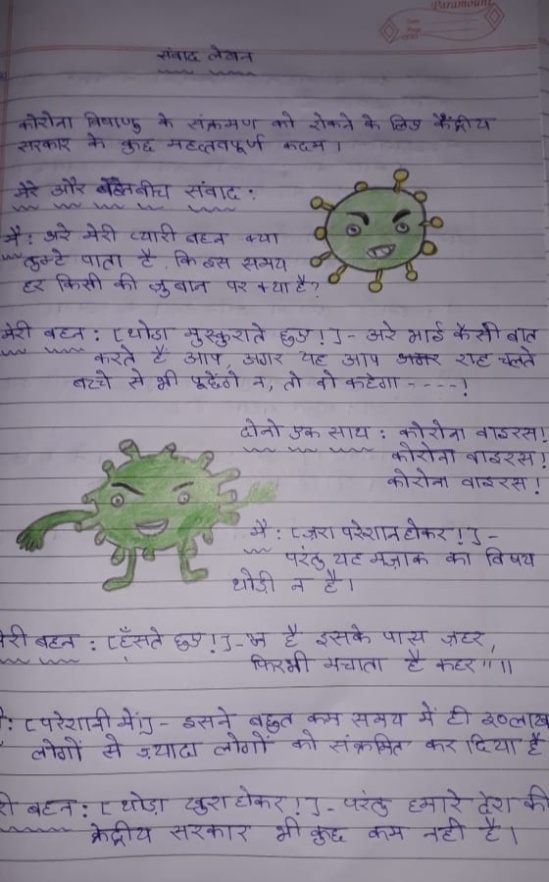 Paramount
संवाद लेखन
कोरोना विषाणु के संक्रमण को रोकने के लिए कैंद्रीय
सरकार के कुछ महत्वपूर्ण कदम।
मेरे और बहन बीच संवाद :
मैं : अरे मेरी प्यारी बहन क्या
तुम्हे पाता है कि इस समय
हर किसी की जुबान पर क्या है?
मेरी बहन : [थोडा मुस्कुराते हुए!] - अरे भाई कैसी बात
करते हैं आप, अगर यह आप राह चलते
बच्चे से भी पूछेंगे न, तो वो कहेगा ----!
दोनो एक साथ : कोरोना वाइरस!
कोरोना वाइरस!
कोरोना वाइरस!
मैं : [ज़रा परेशान होकर!] -
परंतु यह मज़ाक का विषय
थोडी न है।
मेरी बहन : [हँसते हुए!] - न है इसके पास ज़हर,
फिरभी मचाता है कहर"॥
: [परेशानी में!] - इसने बहुत कम समय में ही २०लाख
लोगों से ज़्यादा लोगों को संक्रमित कर दिया है
री बहन : [थोडा खुश होकर!] - परंतु हमारे देश की
केंद्रीय सरकार भी कुछ कम नही है।